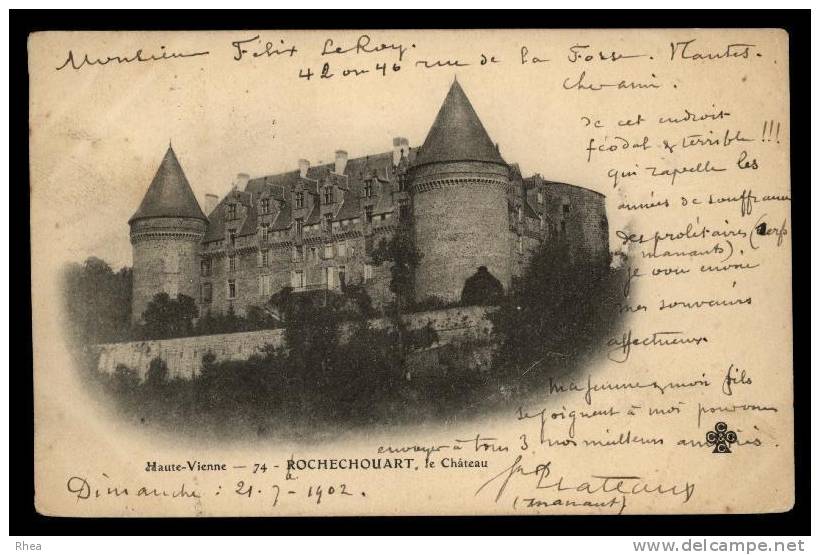 Monsieur Félix LeRoy.
42 ou 46 rue de la Fosse. Nantes.
de cet endroit
féodal & terrible !!!
qui rapelle les
années de souffrance
des prolétaires (serfs
manants).
je vous envoie
mes souvenirs
affectueux.
ma femme & mon fils
se joignent à moi pour vous
envoyer à tous 3 nos meilleurs amitiés.
Haute-Vienne — 74 - ROCHECHOUART, le Château
(manant)
Dimanche : 21-7-1902
C C C C
Rhea
http://www.delcampe.net